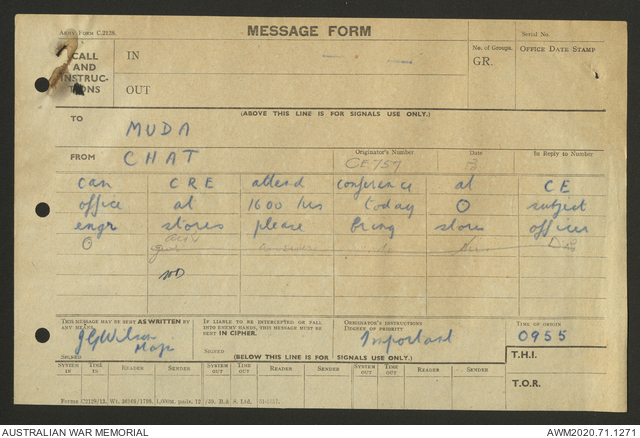 Army Form C.2128.
MESSAGE FORM
Serial No.
CALL AND INSTRUCTIONS
IN
OUT
No. of Groups.
GR.
OFFICE DATE STAMP
(ABOVE THIS LINE IS FOR SIGNALS USE ONLY.)
TO
MUDA
FROM
CHAT
Originator's Number
CE757
Date
In Reply to Number
can CRE attend conference at CE
office at 1600 hrs today O subject
engr stores please bring stores officer
O
THIS MESSAGE MAY BE SENT AS WRITTEN BY ANY MEANS.
JGWilson
Maj
SIGNED
IF LIABLE TO BE INTERCEPTED OR FALL INTO ENEMY HANDS, THIS MESSAGE MUST BE SENT IN CIPHER.
SIGNED
ORIGINATOR'S INSTRUCTIONS
DEGREE OF PRIORITY
Important
TIME OF ORIGIN
0955
(BELOW THIS LINE IS FOR SIGNALS USE ONLY.)
T.H.I.
T.O.R.
SYSTEM IN
TIME IN
READER
SENDER
SYSTEM OUT
TIME OUT
READER
SENDER
SYSTEM OUT
TIME OUT
READER
SENDER
AUSTRALIAN WAR MEMORIAL
AWM2020.71.1271